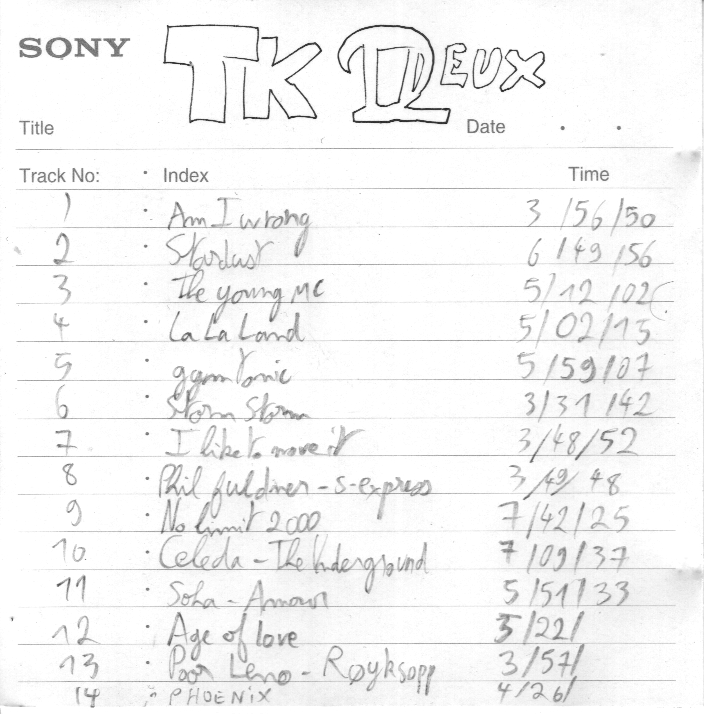 SONY TK DEUX
Title Date . .
Track No: · Index Time
1 · Am I wrong 3/56/50
2 · Stardust 6/49/56
3 · The young MC 5/12/02
4 · La La Land 5/02/13
5 · gym tonic 5/59/07
6 · Storm Storm 3/31/42
7 · I like to move it 3/48/52
8 · Phil fuldner - s-express 3/49/48
9 · No limit 2000 7/42/25
10 · Celeda - The Underground 7/09/37
11 · Soha - Amour 5/51/33
12 · Age of love 5/22/
13 · Poor Leno - Røyksopp 3/57/
14 · PHOENIX 4/26/